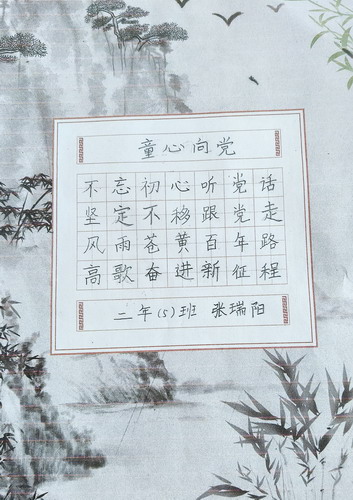 童心向党
不忘初心听党话
坚定不移跟党走
风雨苍黄百年路
高歌奋进新征程
二年(5)班 张瑞阳